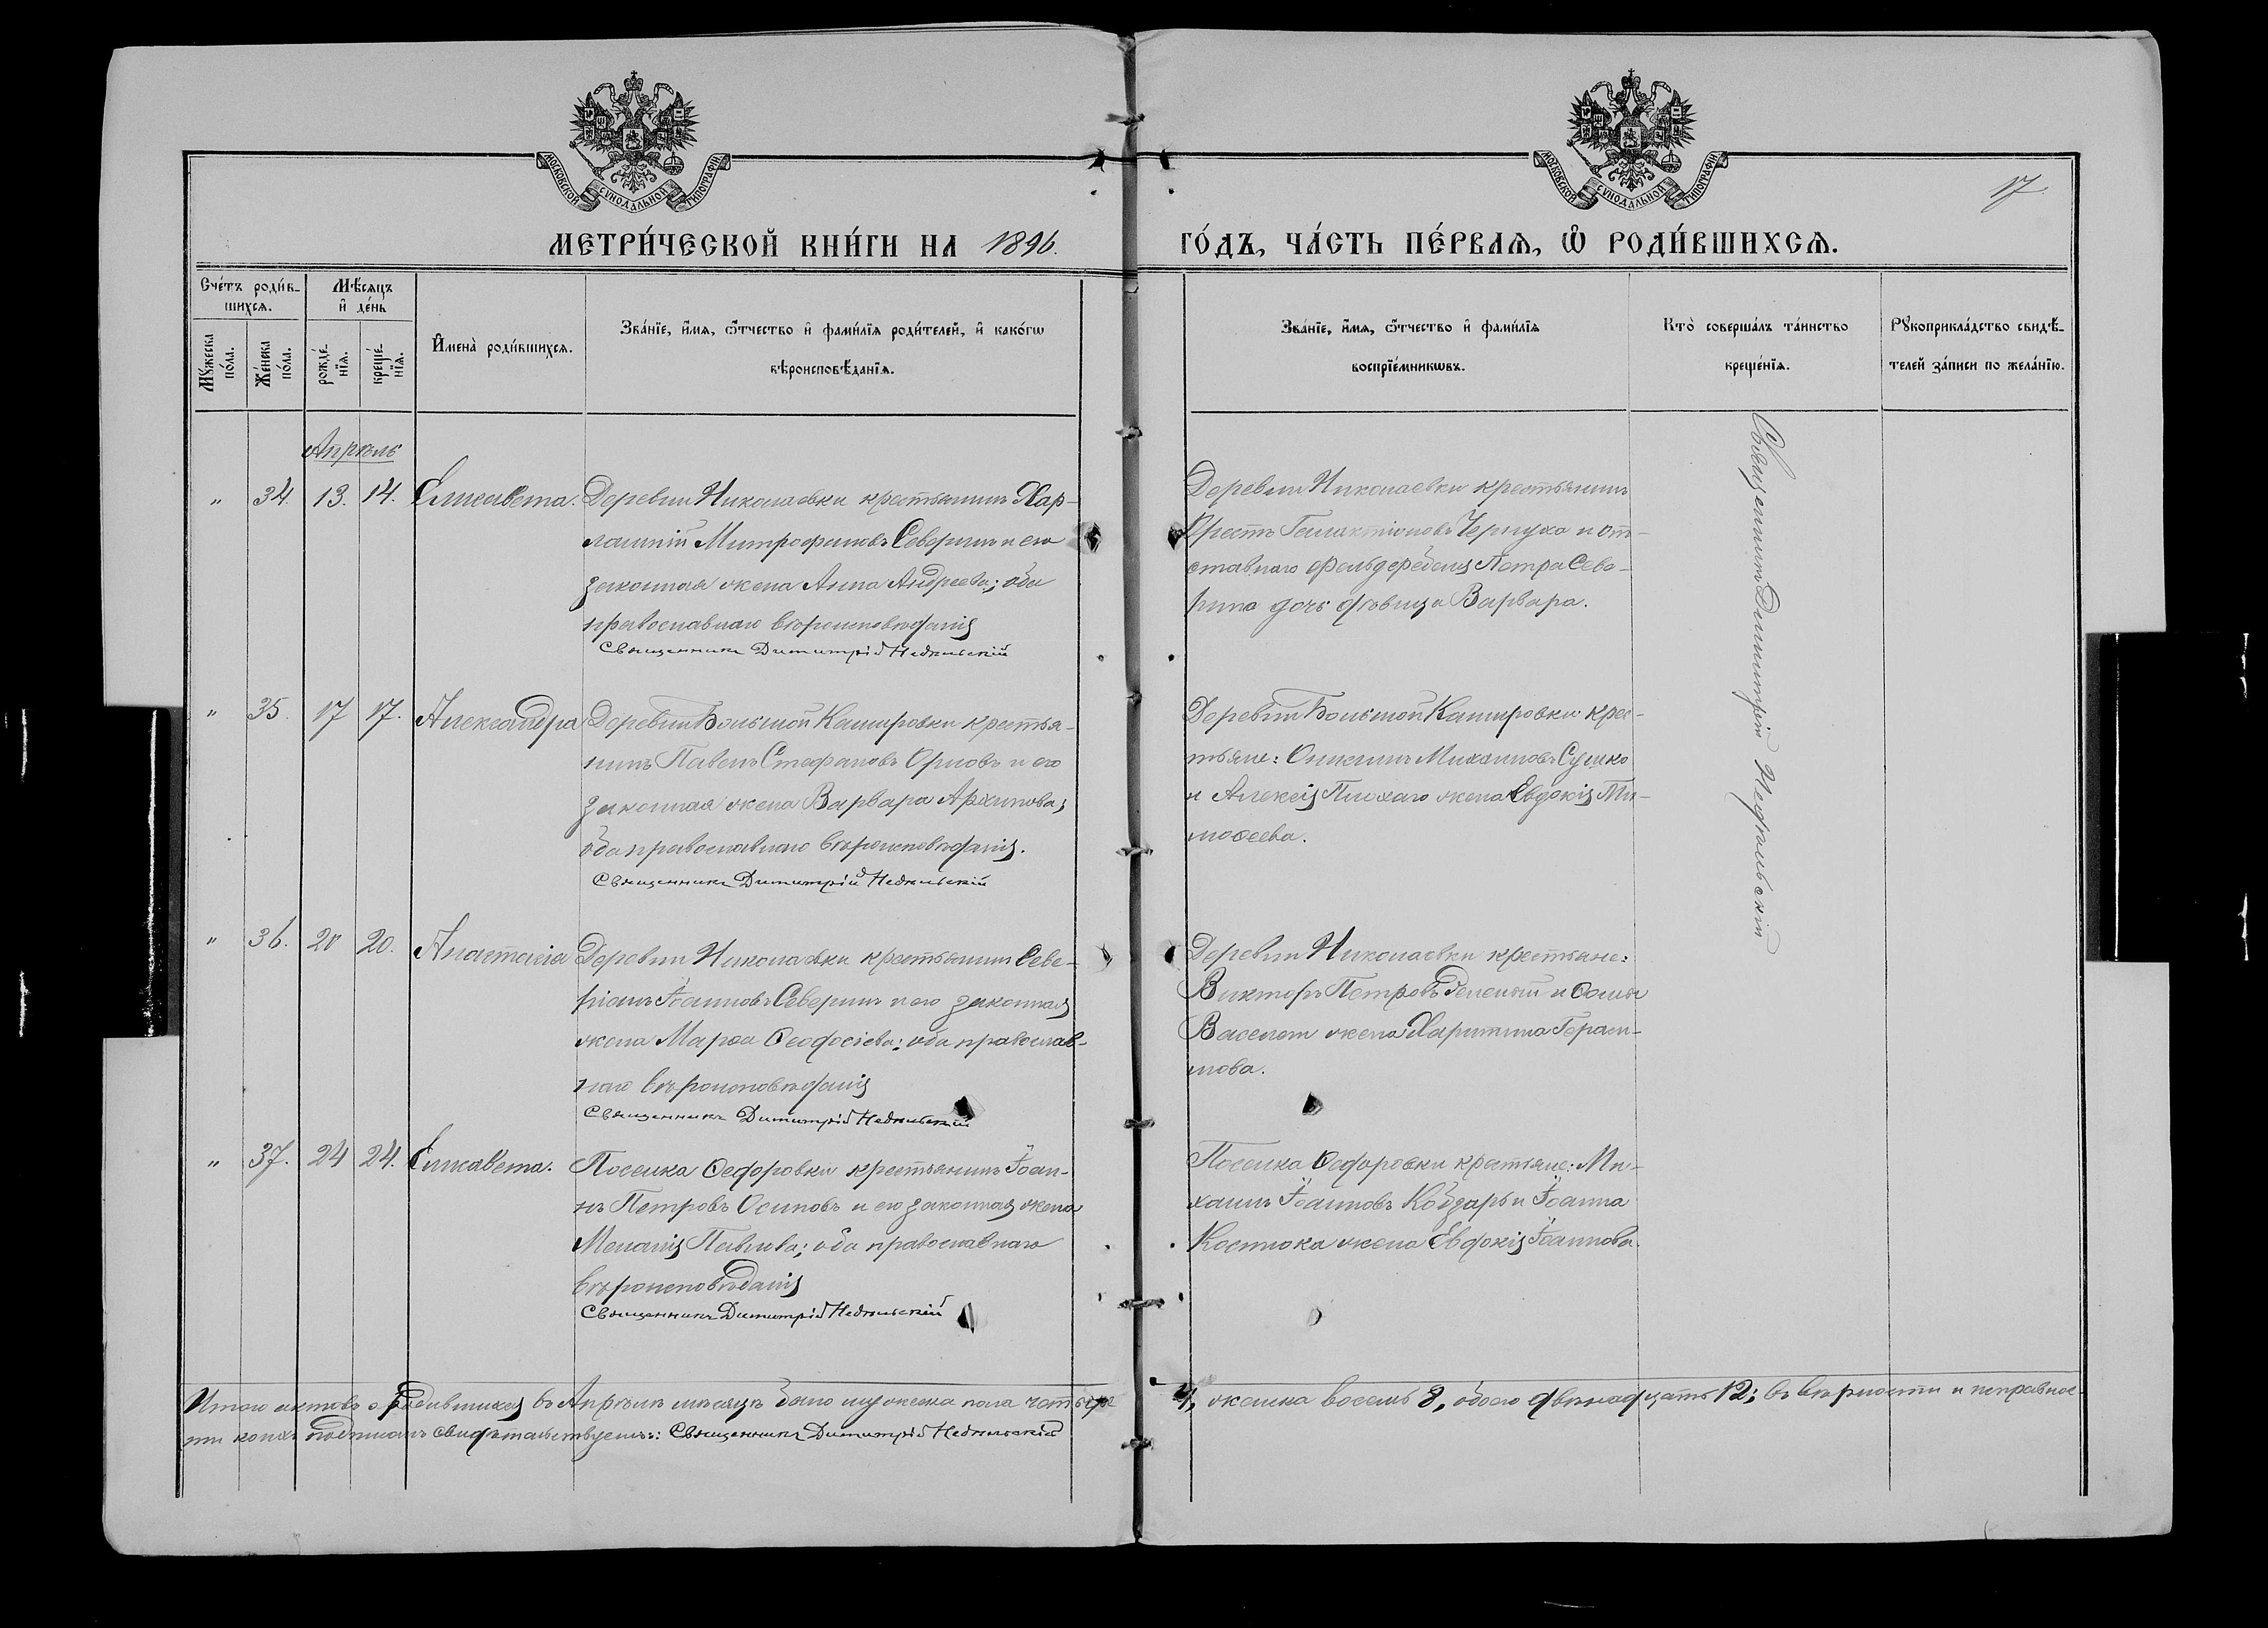 МОСКОВСКОЙ СѴНОДАЛЬНОЙ ТИПОГРАФІИ
МОСКОВСКОЙ СѴНОДАЛЬНОЙ ТИПОГРАФІИ
17.
МЕТРИ́ЧЕСКОЙ КНИ́ГИ НА 1896. ГО́ДЪ, ЧА́СТЬ ПЕ́РВАЯ, Ѡ҆ РОДИ́ВШИХСЯ.
Сче́тъ роди́в-
шихся.
Мꙋ́жеска по́ла.
Же́нска по́ла.
Мѣ́сяцъ
и҆ де́нь
рожде́-
нїя.
креще́-
нїя.
И҆мена̀ роди́вшихся.
Зва́нїе, и҆́мя, ѻ҆́тчество и҆ фами́лїя роди́телей, и҆ како́гѡ
вѣроисповѣ́данїя.
Зва́нїе, и҆́мя, ѻ҆́тчество и҆ фами́лїя
воспрїе́мникѡвъ.
Кто̀ соверша́лъ та́инство
креще́нїя.
Рꙋкоприкла́дство свидѣ́-
телей за́писи по жела́нїю.
Апрѣль
" 34. 13. 14. Елисавета. Деревни Николаевки крестьянинъ Хар-
лампій Митрофановъ Северинъ и его
законная жена Анна Андреева; оба
православнаго вѣроисповѣданія
Священникъ Димитрій Недѣльскій
Деревни Николаевки крестьянинъ
Орестъ Галактіоновъ Чернуха и от-
ставнаго фельдфебеля Петра Севе-
рина дочь дѣвица Варвара.
Священникъ Димитрій Недѣльскій
" 35. 17 17. Александра Деревни Большой Кашировки крестья-
нинъ Павелъ Стефановъ Орловъ и его
законная жена Варвара Архипова,
оба православнаго вѣроисповѣданія.
Священникъ Димитрій Недѣльскій
Деревни Большой Кашировки крес-
тьяне: Михаиловъ Сушко
и Алексія жена Евдокія Ти-
моѳеева.
" 36. 20 20. Анастасія Деревни Николаевки крестьянинъ Севе-
ріанъ Іоанновъ Северинъ и его законная
жена Марѳа Ѳеодосіева; оба православ-
наго вѣроисповѣданія
Священникъ Димитрій Недѣльскій
Деревни Николаевки крестьяне:
Викторъ Петровъ и Ѳомы
жена Харитина Гераси-
мова.
" 37. 24 24. Елисавета. Поселка Ѳедоровки крестьянинъ Іоан-
нъ Петровъ Осиповъ и его законная жена
Меланія Павлова; оба православнаго
вѣроисповѣданія
Священникъ Димитрій Недѣльскій
Поселка Ѳедоровки крестьяне: Ми-
хаилъ Іоанновъ Кобзарь и Іоанна
Костюка жена Евдокія Іоаннова.
Итого актовъ о родившихся въ Апрѣлѣ мѣсяцѣ было мужеска пола четыре 4, женска восемь 8, обоего двѣнадцать 12; въ вѣрности и исправнос-
ти коихъ подписомъ свидѣтельствуемъ: Священникъ Димитрій Недѣльскій